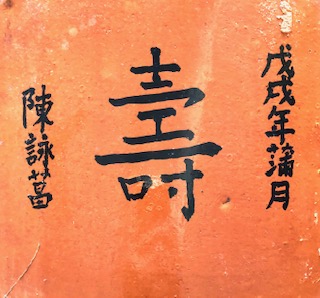 戊戌年蒲月
壽
陳詠菖